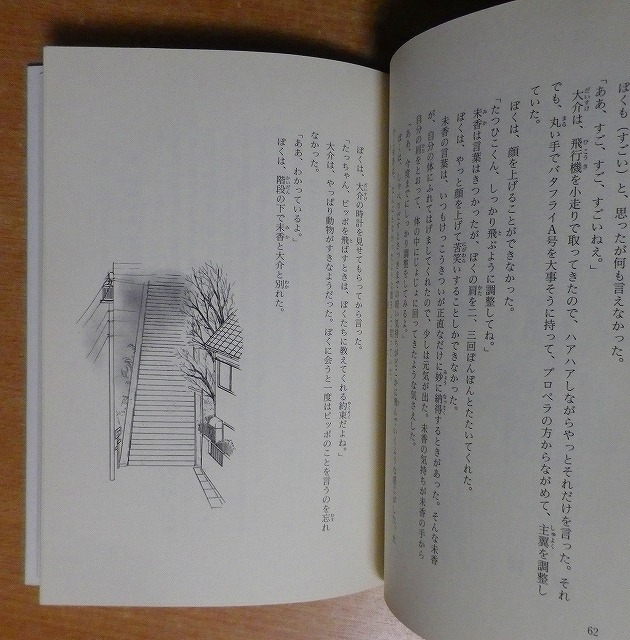 ぼくも（すごい）と、思ったが何も言えなかった。
「ああ、すご、すご、すごいねえ。」
大介は、飛行機を小走りで取ってきたので、ハアハアしながらやっとそれだけを言った。それ
でも、丸い手でバタフライA号を大事そうに持って、プロペラの方からながめて、主翼を調整し
ていた。
ぼくは、顔を上げることができなかった。
「たつひこくん、しっかり飛ぶように調整してね。」
未香は言葉はきつかったが、ぼくの肩を二、三回ぽんぽんとたたいてくれた。
ぼくは、やっと顔を上げて苦笑いすることしかできなかった。
未香の言葉は、いつもけっこうきついが正直なだけに妙に納得するときがあった。そんな未香
が、自分の体にふれてはげましてくれたので、少しは元気が出た。未香の気持ちが未香の手から
自分の肩をとおって、体の中にじょじょに回ってきたような気さえした。
「ああ、今度までにしっかり調整をしてみるよ。」
62
ぼくは、大介の時計を見せてもらってから言った。
「たっちゃん、ピッポを飛ばすときは、ぼくたちに教えてくれる約束だよね。」
大介は、やっぱり動物がすきなようだった。ぼくに会うと一度はピッポのことを言うのを忘れ
なかった。
「ああ、わかっているよ。」
ぼくは、階段の下で未香と大介と別れた。